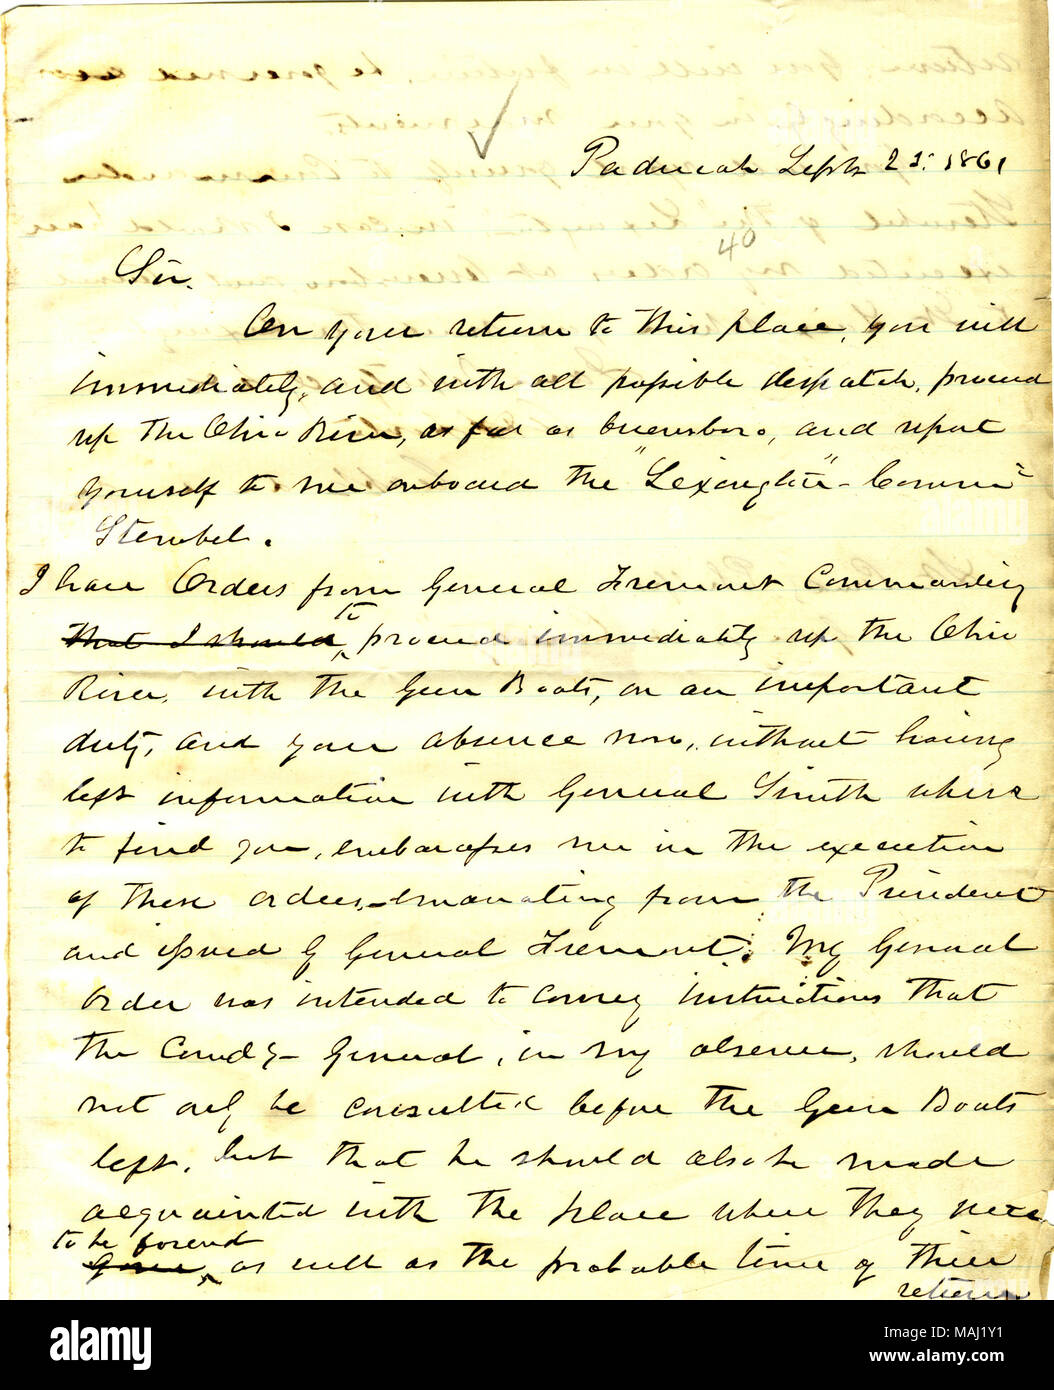 Paducah Sept 23. 1861
40
Sir.
On your return to this place, you will
immediately, and with all possible despatch, proceed
up the Ohio River, as far as Owensboro, and report
yourself to me onboard the "Lexington" - Comm
Stembel.
I have Orders from General Fremont Commanding
that I should to proceed immediately up the Ohio
River, with the Gun Boats, on an important
duty, and your absence now, without having
left information with General Smith where
to find you, embarasses me in the execution
of these orders, emanating from the President
and issued by General Fremont. My General
Order was intended to convey instructions that
the Comdg - General, in my absence, should
not only be consulted before the Gun Boats
left, but that he should also be made
acquainted with the place where they were
to be found
gone, as well as the probable time of their
return
alamy
Image ID: MAJ1Y1
www.alamy.com